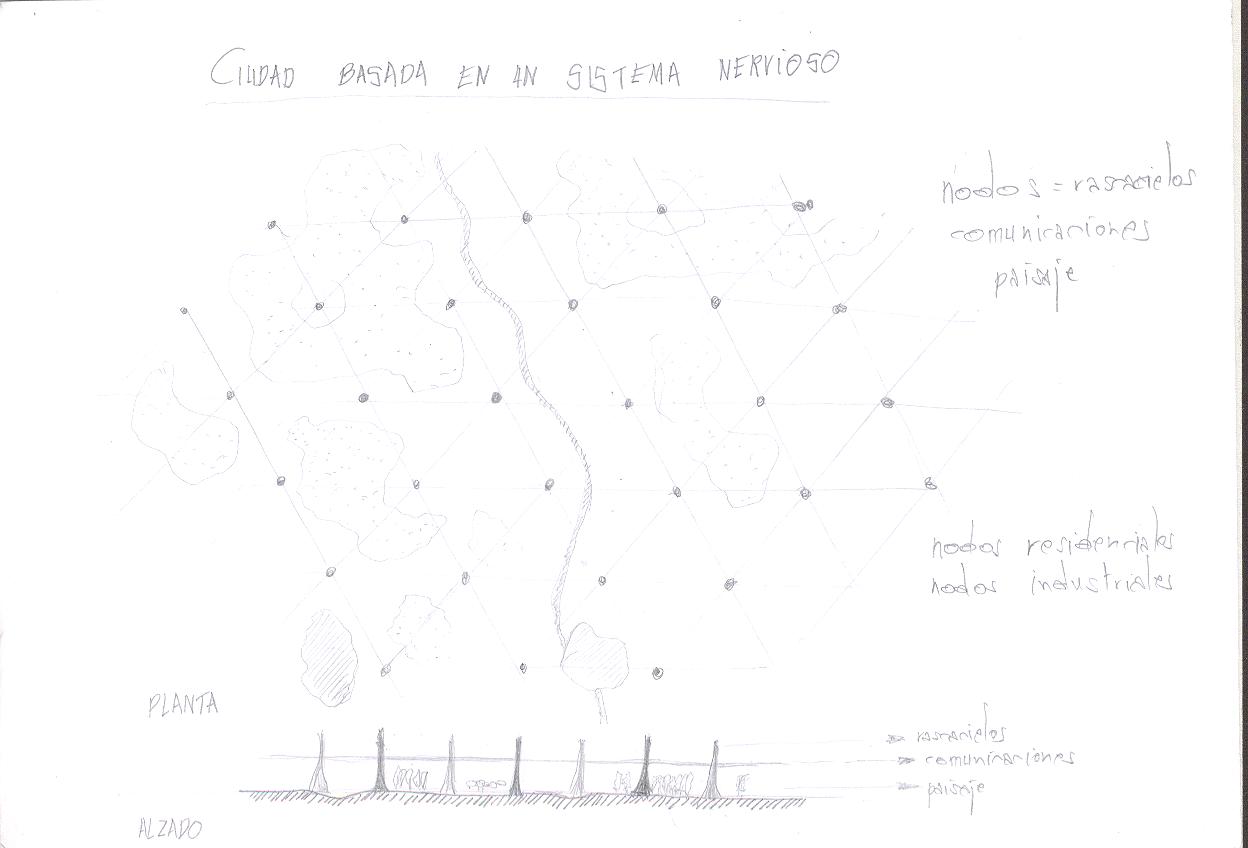 CIUDAD BASADA EN UN SISTEMA NERVIOSO
nodos = rascacielos
comunicaciones
paisaje
nodos residenciales
nodos industriales
PLANTA
rascacielos
comunicaciones
paisaje
ALZADO